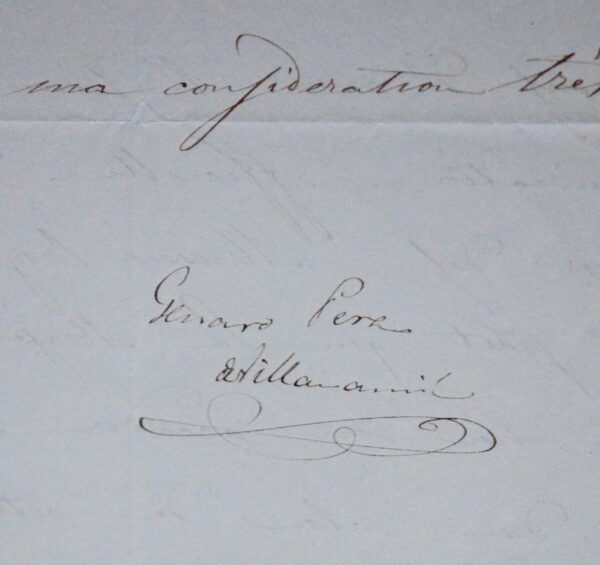 ma consideration très
Genaro Perez
de Villaamil